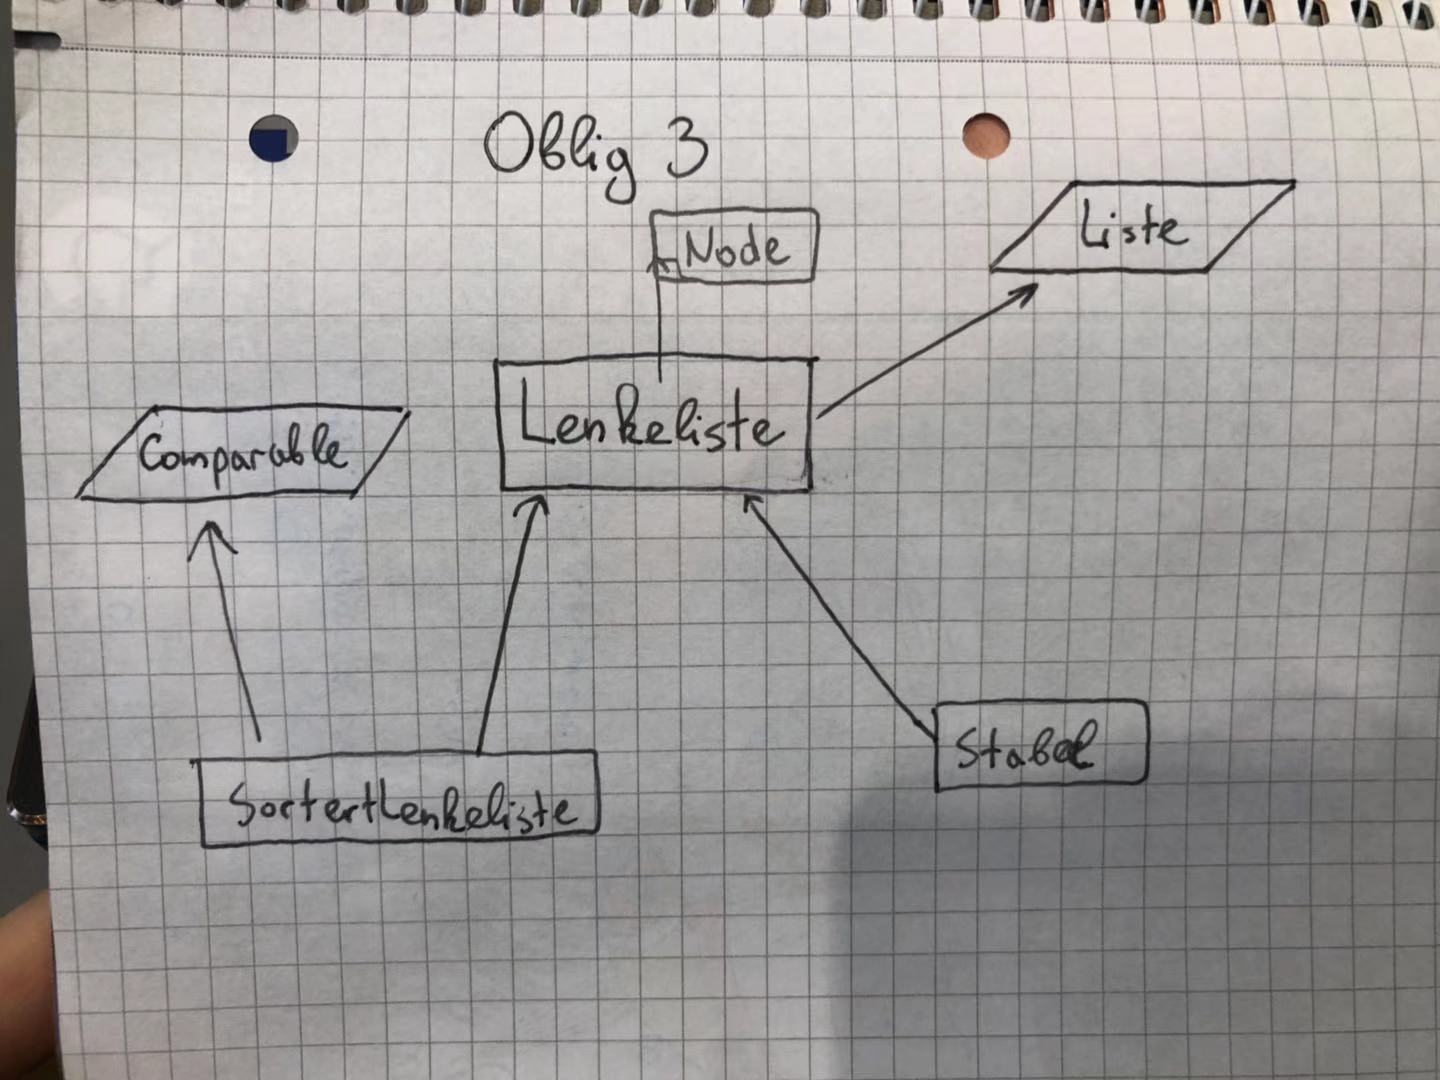 Oblig 3
Node
Liste
Lenkeliste
Comparable
SortertLenkeliste
Stabel